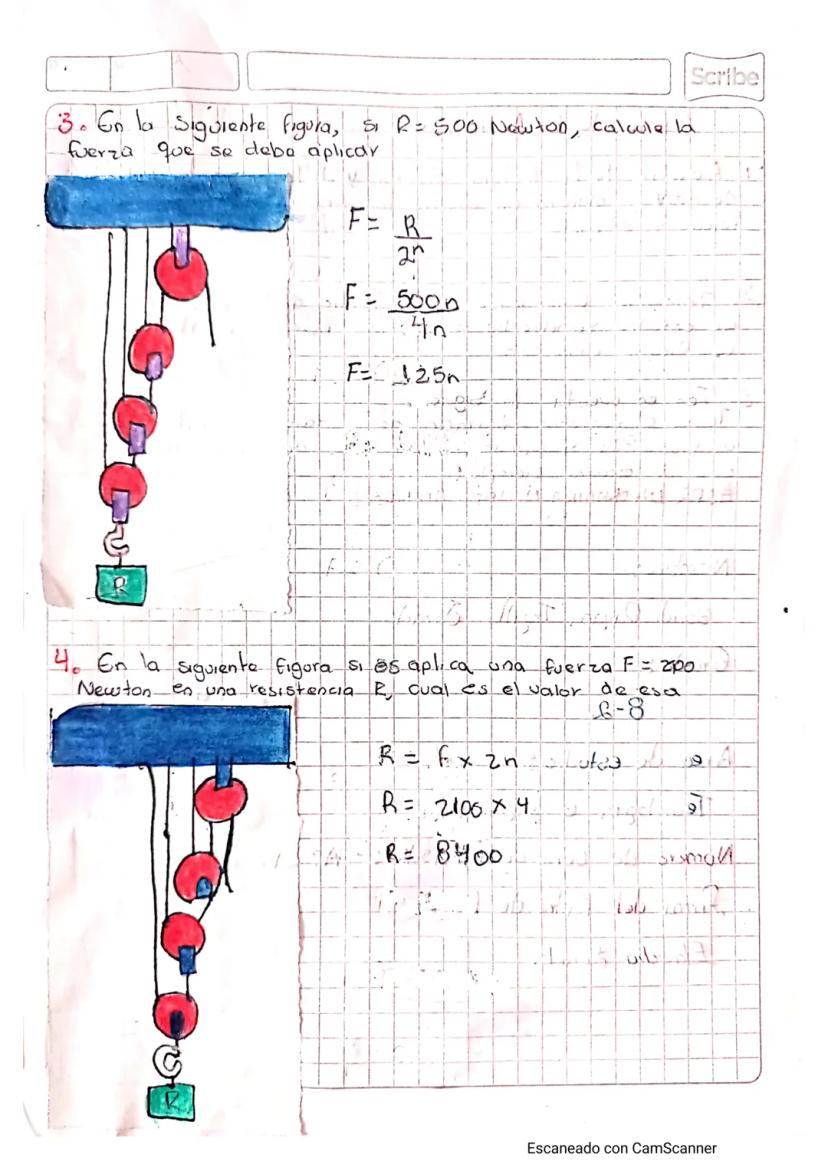 Scribe
3. En la siguiente figura, si R = 500 Newton, calcule la
fuerza que se deba aplicar
F = R
2ⁿ
F = 500n
4n
F= 125n
R
4. En la siguiente figura si es aplica una fuerza F = 2100
Newton en una resistencia R, cual es el valor de esa
R = f x 2n
R = 2100 x 4
R = 8400
R
Escaneado con CamScanner